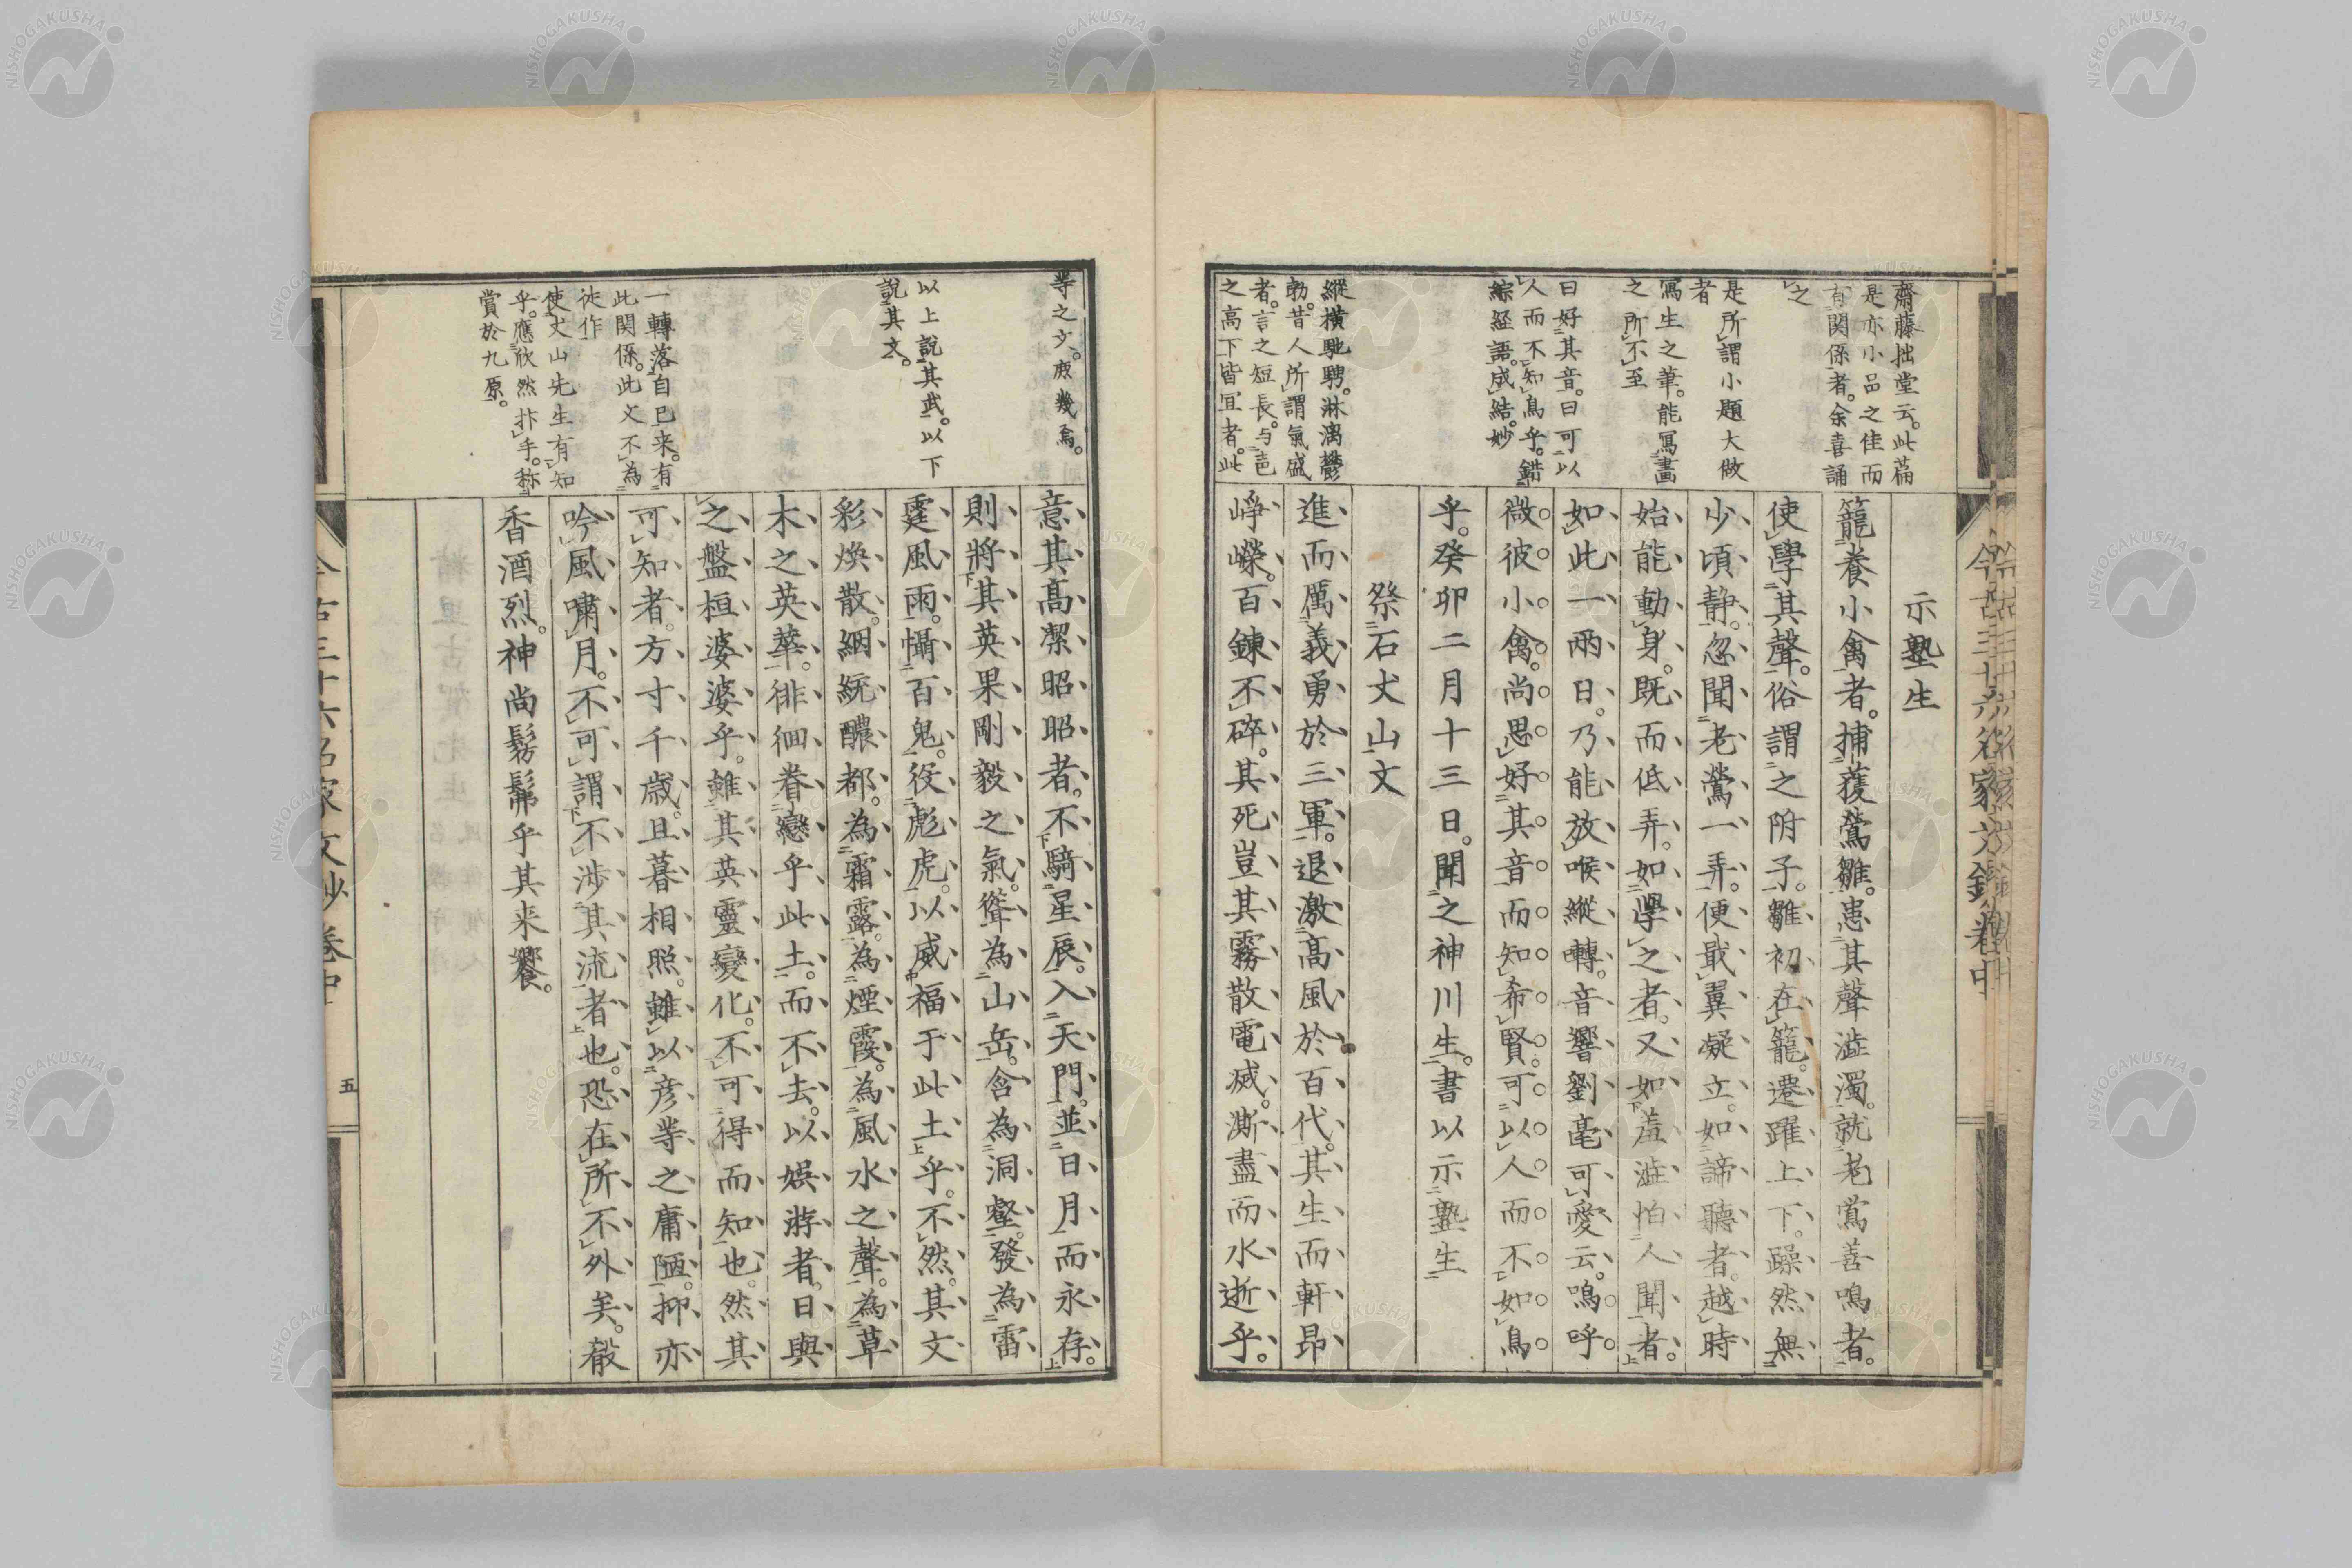 示塾生
籠養小禽者。捕獲鶯雛。患其聲澁濁。就老鶯善鳴者。
使學其聲。俗謂之附子。雛初在籠。遷躍上下。躁然無
少頃静。忽聞老鶯一弄。便戢翼凝立。如諦聽者。越時
始能動身。既而低弄。如學之者。又如羞澁怕人聞者。
如此一兩日。乃能放喉縱轉。音響劉亮可愛云。嗚呼。
微彼小禽。尚思好其音而知希賢。可以人而不如鳥
乎。癸卯二月十三日。聞之神川生。書以示塾生
祭石丈山文
進而厲義勇於三軍。退激高風於百代。其生而軒昂
崢嶸。百鍊不碎。其死豈其霧散電滅。澌盡而水逝乎。
齋藤拙堂云。此篇
是亦小品之佳而
有関係者。余喜誦
之
是所謂小題大做
者
寫生之筆。能寫畫
之所不至
曰好其音。曰可以
人而不知鳥乎。錯
綜経語。成結妙
縱横馳騁。淋漓鬱
勃。昔人所謂氣盛
者。言之短長。与
之高下皆宜者。此
意其高潔昭昭者。不騎星辰。入天門。並日月而永存。
則將其英果剛毅之氣。聳為山岳。含為洞壑。發為雷
霆風雨。懾百鬼。役彪虎。以威福于此土乎。不然。其文
彩煥散。絪縕醲都。為霜露。為煙霞。為風水之聲。為草
木之英華。徘徊眷戀乎此土。而不去。以娯游者。日與
之盤桓婆娑乎。雖其英靈變化。不可得而知也。然其
可知者。方寸千歳。且暮相照。雖以彦等之庸陋。抑亦
吟風嘯月。不可謂不渉其流者也。恐在所不外矣。殽
香酒烈。神尚髣髴乎其来饗。
等之文。庶幾焉。
以上說其武。以下
說其文。
一轉落自已来。有
此関係。此文不為
徒作
使丈山先生有知
乎。應欣然抃手。称
賞於九原。
五